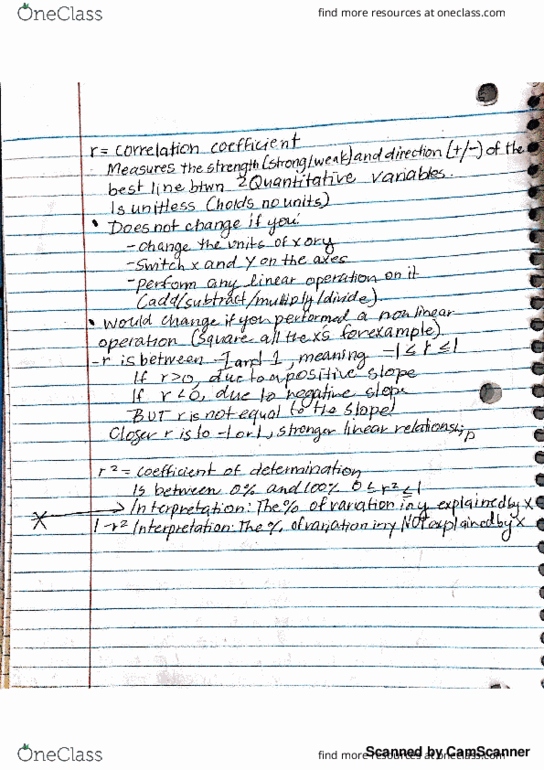 OneClass
find more resources at oneclass.com
r = correlation coefficient
Measures the strength (strong/weak) and direction (+/-) of the
best line btwn 2 Quantitative variables.
Is unitless (holds no units)
• Does not change if you:
-change the units of x or y
-switch x and y on the axes
-perform any linear operation on it
(add/subtract/multiply/divide).
• Would change if you performed a nonlinear
operation (square all the x's for example)
-r is between -1 and 1, meaning -1 ≤ r ≤ 1
If r>0, due to a positive slope
If r<0, due to negative slope
-BUT r is not equal to the slope!
Closer r is to -1 or 1, stronger linear relationship
r² = coefficient of determination
Is between 0% and 100% 0 ≤ r² ≤ 1
Interpretation: The % of variation in y explained by x
1-r² Interpretation: The % of variation in y NOT explained by x
OneClass
find more resources at oneclass.com
Scanned by CamScanner